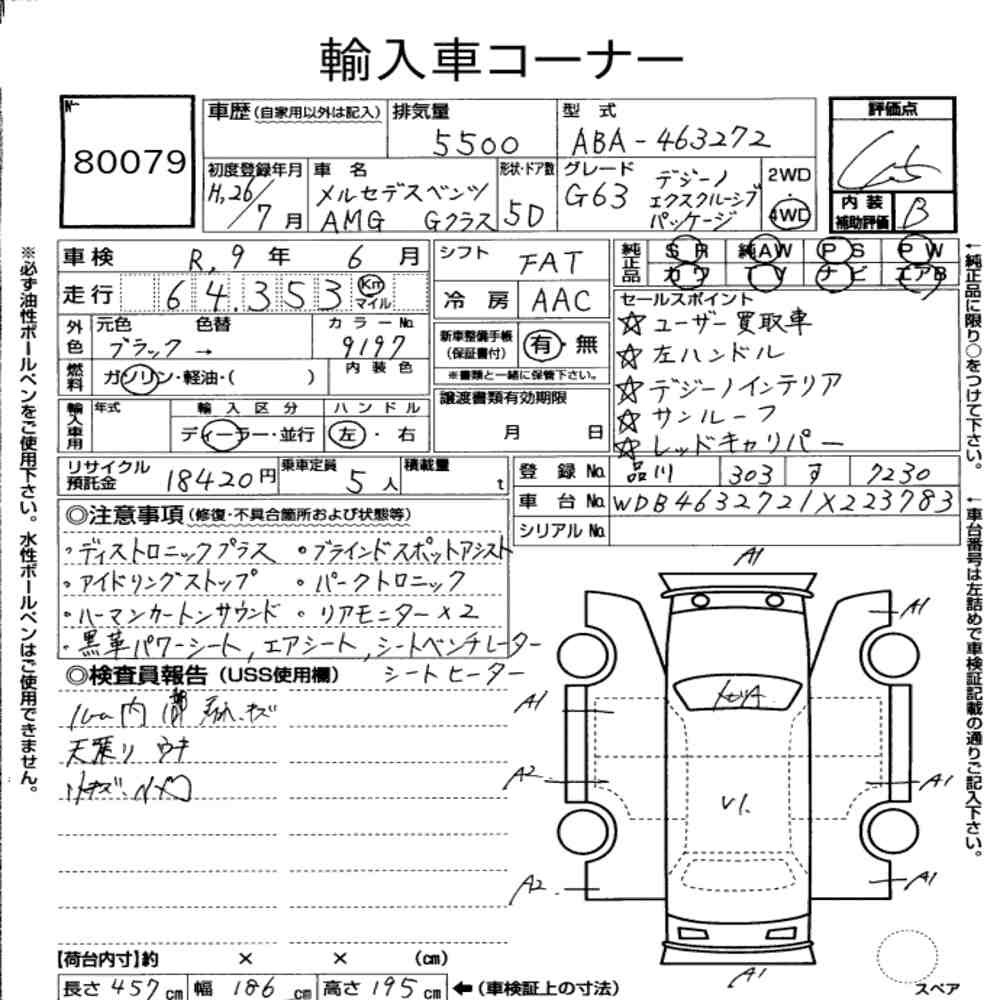 輸入車コーナー
No.
80079
車歴(自家用以外は記入) 排気量 型式 評価点
5500 ABA-463272
初度登録年月 車名 形状・ドア数 グレード 2WD
H.26/7月 メルセデスベンツ AMG Gクラス 5D G63 デジーノ エクスクルーシブ パッケージ 4WD
内装補助評価 B
車検 R.9年 6月 シフト FAT 純正品 SR 純AW PS PW
カワ TV ナビ エアB
走行 64,353 Km マイル 冷房 AAC
セールスポイント
外色 元色 色替 カラーNo. 新車整備手帳(保証書付) 有・無
ブラック → 9197 ※書類と一緒に保管下さい。
☆ユーザー買取車
☆左ハンドル
☆デジーノインテリア
☆サンルーフ
☆レッドキャリパー
燃料 ガソリン・軽油・( ) 内装色
譲渡書類有効期限
月 日
輸入車用 年式 輸入区分 ハンドル
ディーラー・並行 左・右
リサイクル預託金 18420円 乗車定員 5人 積載量 t
登録No. 品川 303 す 7230
車台No. WDB4632721X223783
シリアルNo.
◎注意事項(修復・不具合箇所および状態等)
・ディストロニックプラス ・ブラインドスポットアシスト
・アイドリングストップ ・パークトロニック
・ハーマンカードンサウンド ・リアモニター×2
・黒革パワーシート,エアシート,シートベンチレーター
シートヒーター
◎検査員報告(USS使用欄)
天張り ウキ
A1
A1
A1
A2
A1
A2
A1
A1
【荷台内寸】約 × × (cm)
長さ 457cm 幅 186cm 高さ 195cm ←(車検証上の寸法)
スペア
※必ず油性ボールペンをご使用下さい。水性ボールペンはご使用できません。
←純正品に限り○をつけて下さい。
←車台番号は左詰めで車検証記載の通りご記入下さい。